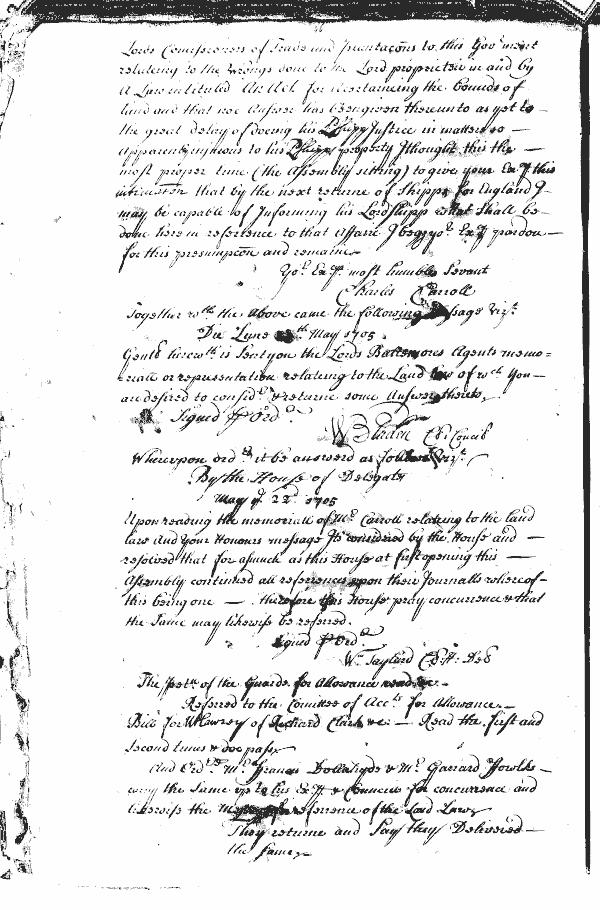 Lords Comissioners of Trade and Plantacons to this Governmt
relating to the wrongs done to the Lord proprietor in and by
A Law intituled An Act for Ascertaineing the bounds of
land and that noe Answer has been given thereunto as yet to
the great delay of doeing his Lspp Justice in matters so
apparently injurious to his Lspps property I thought this the
most proper time (the Assembly sitting) to give your Exy this
intimation that by the next returne of Shipps for England I
may be capable of Informing his Lordshipp what shall be
done here in reference to that Affaire I beg yor Exys pardon
for this presumption and remaine
Yor Exys most humble Servant
Charles Carroll
Together wth the above came the following Message vizt
Die Lunæ May 1705
Gents herewth is Sent you the Lords Baltemores Agents memo=
=riall or representation relating to the Land Law of wch you
are desired to consider & returne some Answer thereto
Signed p Ordr
W Bladen Cl: Concil
Whereupon ordred it be answered as followeth vizt
By the House of Delegats
May ye 22d 1705
Upon reading the memoriall of Mr Carroll relating to the land
law And your Honours message Its considered by the House and
resolved that for asmuch as this House at first opening this
Assembly continued all references upon their Journalls whereof
this being one — therefore this House pray concurrence & that
the Same may likewise be referred.
Signed p Ordr
Wm Taylard Cl: H: Del
The Petn of the Guards for Allowance read &c
Referred to the Comittee of Accts for Allowance
Bill for of Richard Clark &c — Read the first and
second times & doe pass
And Ordred Mr Francis Dollahyde & Mr Garrard Fowlks
carry the Same up to his Exy & Councill for concurrence and
likewise the reference of the Land Law
They returne and Say they Delivered
the same